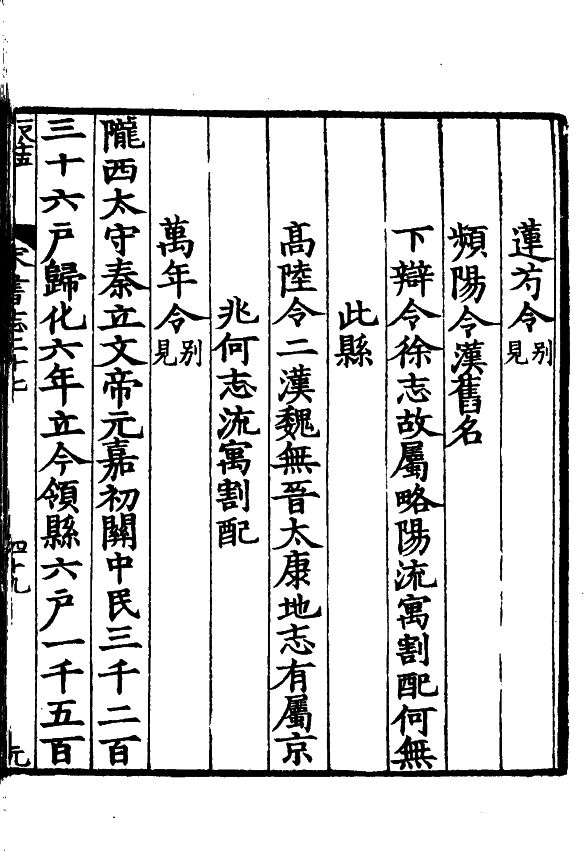 蓮芍令別見
頻陽令漢舊名
下辯令徐志故屬略陽流寓割配何無
此縣
高陸令二漢魏無晉太康地志有屬京
兆何志流寓割配
萬年令別見
隴西太守秦立文帝元嘉初關中民三千二百
三十六戶歸化六年立今領縣六戶一千五百
宋書志二十七 四十九 元